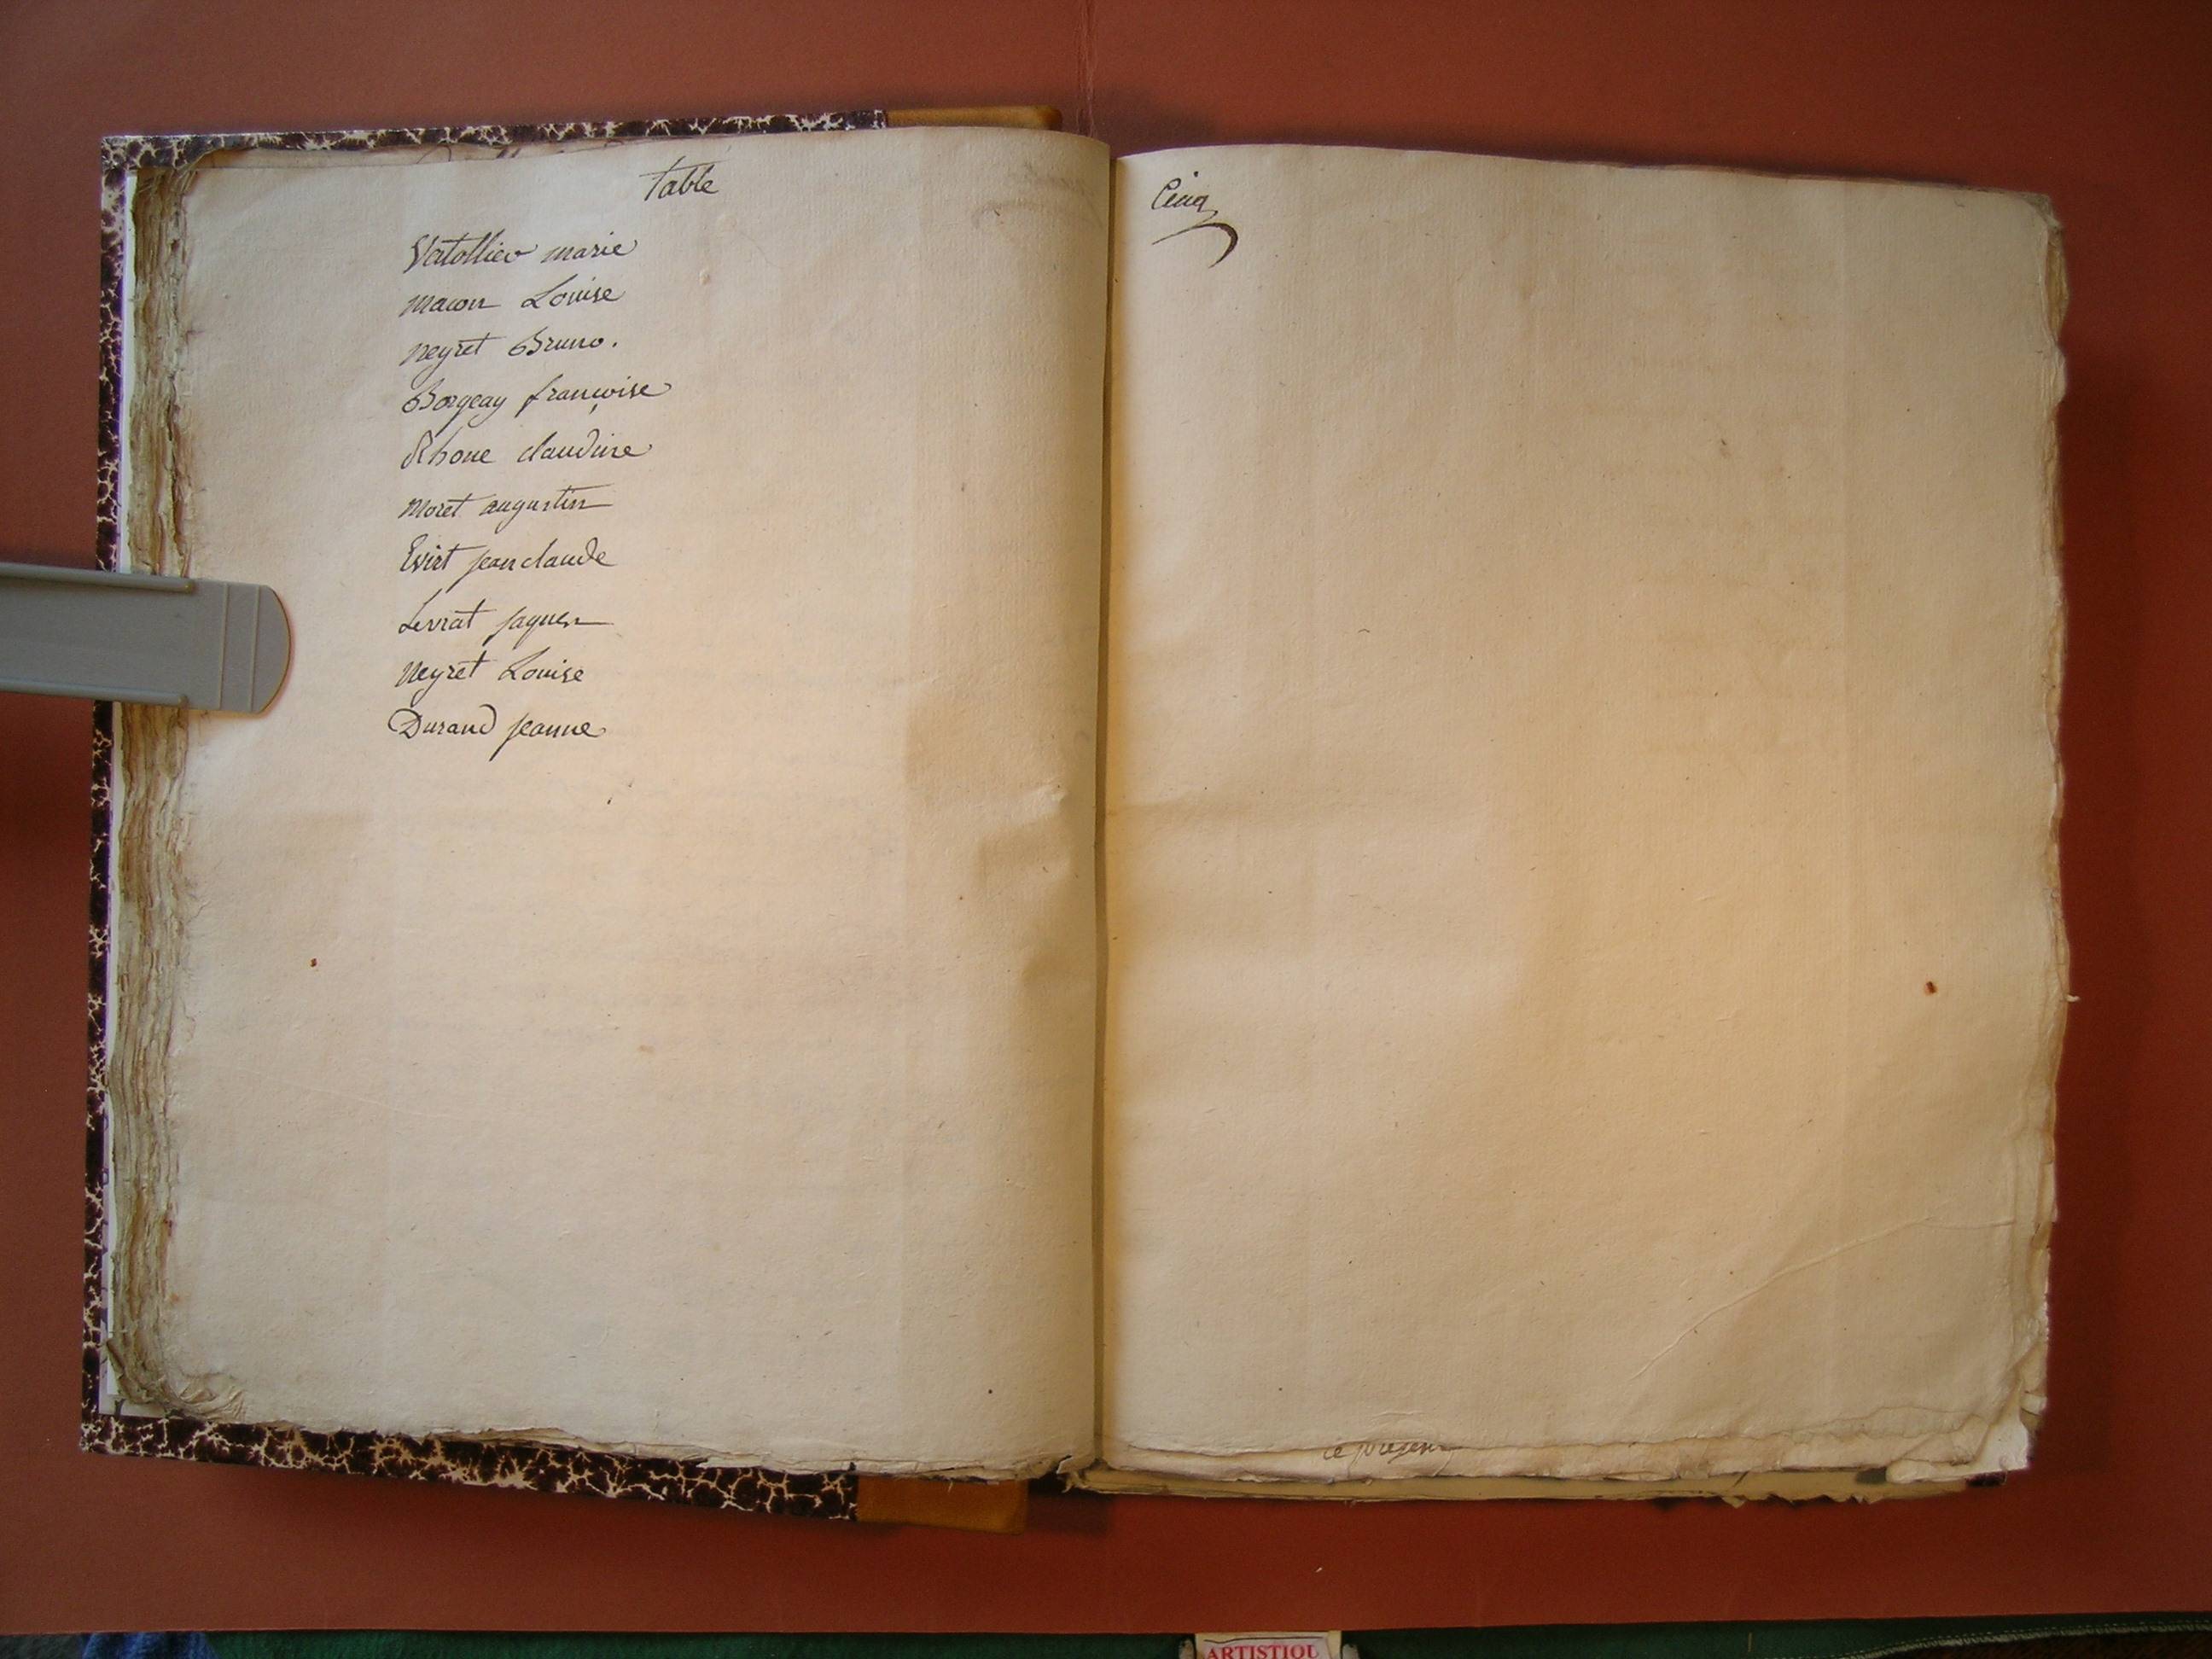 Table
Vertollier marie
macon Louise
neyret Bruno.
Borgeay françoise
Rhone claudine
moret augustin
Evirt jean claude
Levrat jaques
neyret Louise
Durand jeanne
Cinq
ce presen
ARTISTIQU